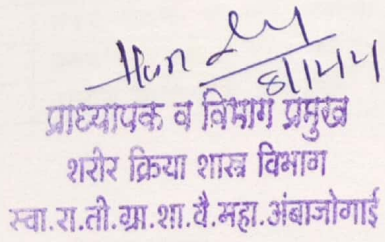 प्राध्यापक व विभाग प्रमुख
शरीर क्रिया शास्त्र विभाग
स्वा.रा.ती.ग्रा.शा.वै.महा.अंबाजोगाई